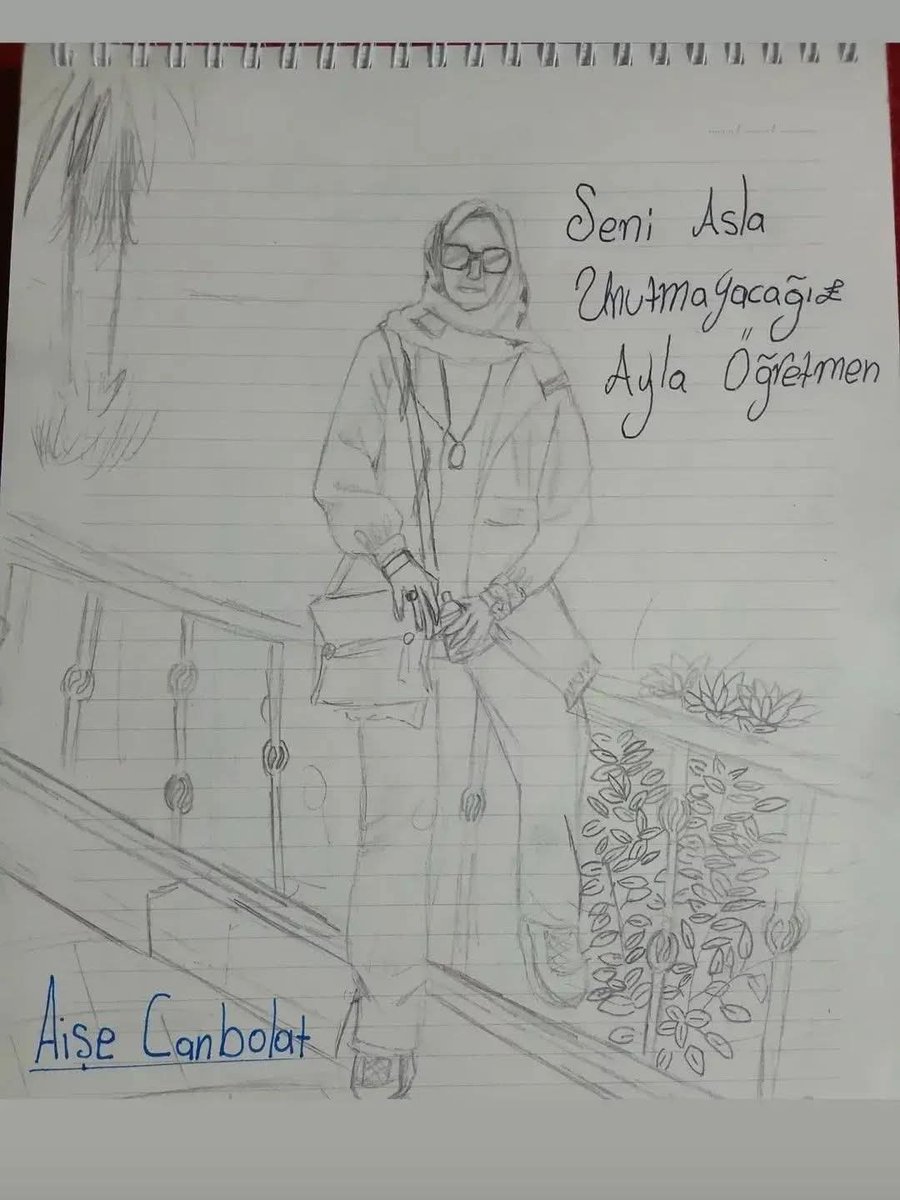 Seni Asla
Unutmayacağız
Ayla Öğretmen
Aişe Canbolat